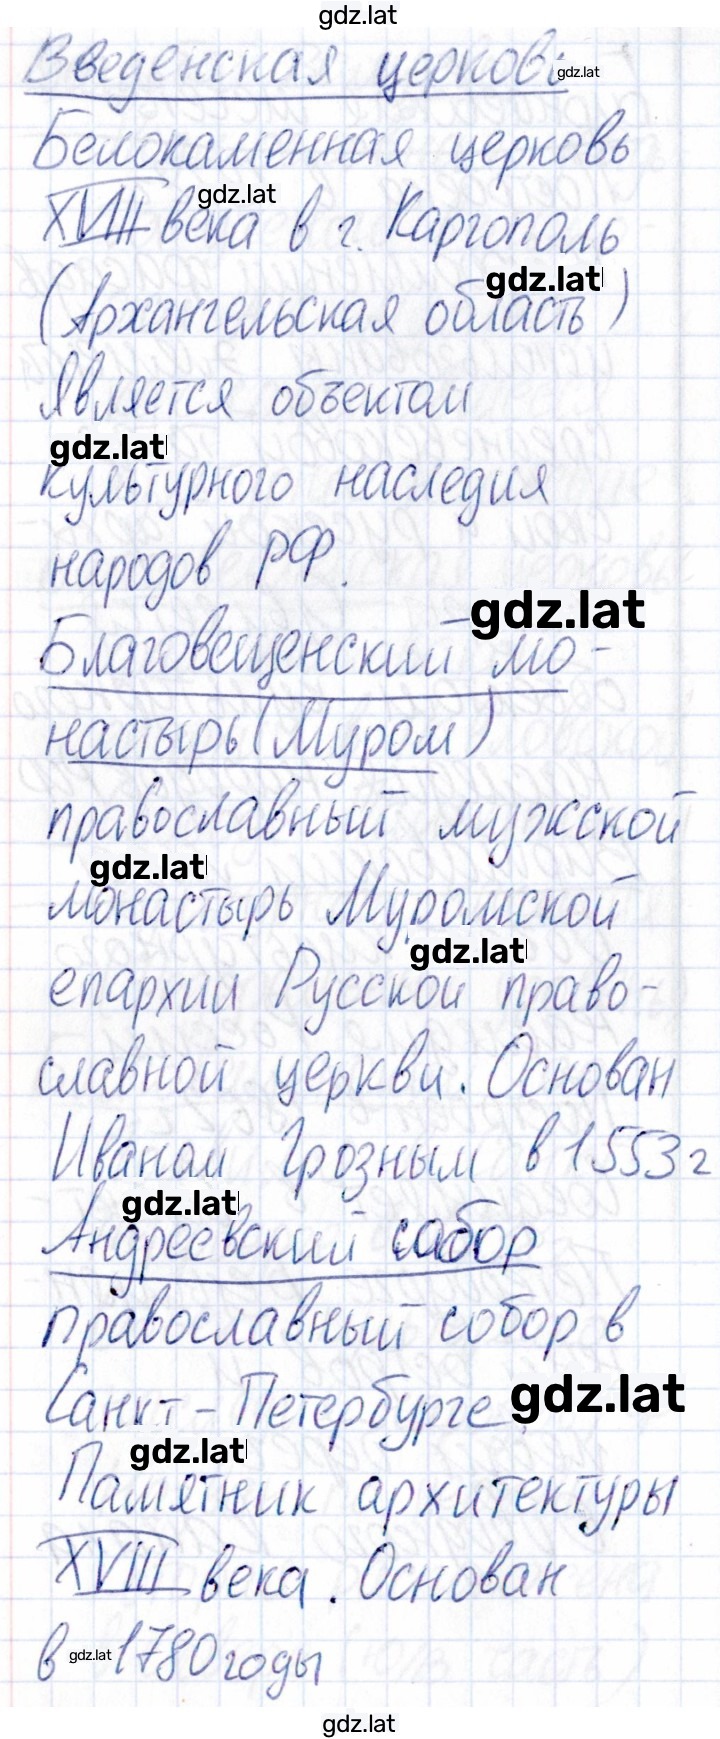 gdz.lat
Введенская церковь
gdz.lat
Белокаменная церковь
gdz.lat
XVIII века в г. Каргополь
gdz.lat
(Архангельская область)
Является объектом
gdz.lat
культурного наследия
народов РФ.
gdz.lat
Благовещенский мо-
настырь (Муром)
православный мужской
gdz.lat
монастырь Муромской
gdz.lat
епархии Русской право-
славной церкви. Основан
Иваном Грозным в 1553 г
gdz.lat
Андреевский собор
православный собор в
gdz.lat
Санкт-Петербурге.
gdz.lat
Памятник архитектуры
XVIII века. Основан
gdz.lat
в 1780 годы
gdz.lat